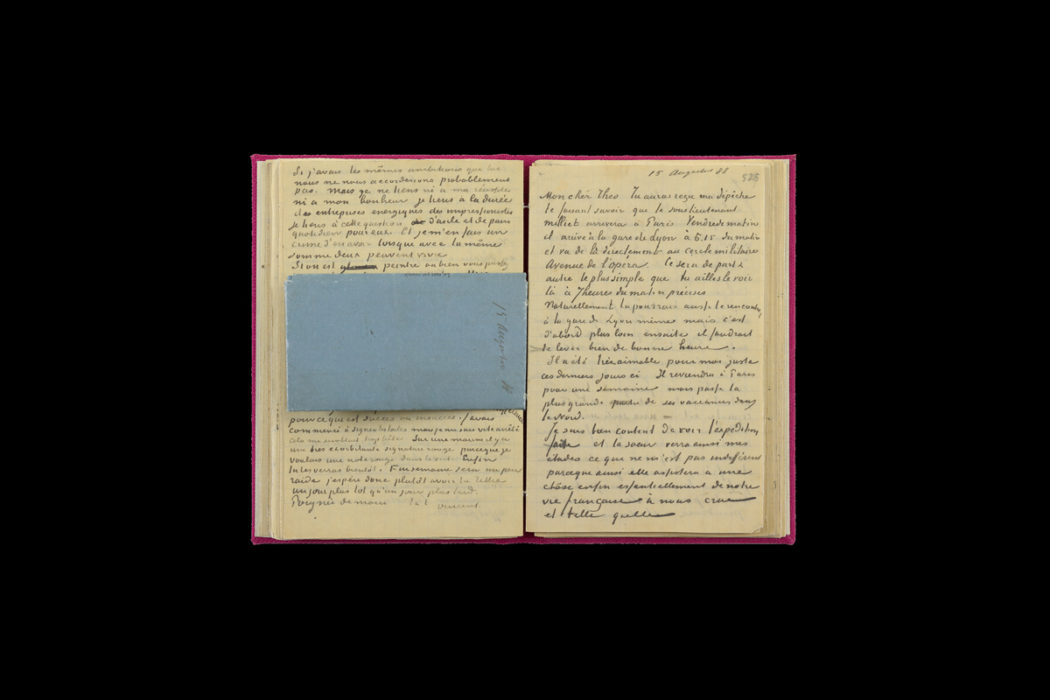 Si j'avais les mêmes ambitions que lui
nous ne nous accorderions probablement
pas. mais je ne tiens ni à ma réussite
ni à mon bonheur je tiens à la durée
des entreprises energiques des impressionistes
je tiens à cette question d'asile et de pain
quotidien pour eux. Et je m'en fais un
crime d'en avoir lorsque avec la même
somme deux peuvent vivre
Si on est peintre ou bien vous passez
15 Augustus 88
pour ce que est succès ou insuccès. j'avais
commencé à signer les toiles mais je me suis vite arrêté
cela me semblait trop bête. Sur une marine il y a
une très exorbitante signature rouge parceque je
voulais une note rouge dans le vert. Enfin
tu les verras bientôt. Fin semaine sera un peu
raide j'espère donc plutôt avoir la lettre
un jour plus tôt qu'un jour plus tard.
Poignée de main t. à t.
Vincent
15 Augustus 88
526
Mon cher Theo Tu auras reçu ma dépêche
te faisant savoir que le souslieutenant
milliet arrivera à Paris Vendredi matin
il arrive à la gare de Lyon à 5.15 du matin
et va de là directement au cercle militaire
Avenue de l'opera Ce sera de part &
autre le plus simple que tu ailles le voir
là à 7 heures du matin précises
Naturellement tu pourrais aussi le rencontrer
à la gare de Lyon même mais c'est
d'abord plus loin ensuite il faudrait
te lever bien de bonne heure.
Il a été très aimable pour moi juste
ces derniers jours ci Il reviendra à Paris
pour une semaine mais passe la
plus grande partie de ses vacances dans
le Nord.
Je suis bien content de voir l'expédition
faite et la soeur verra ainsi mes
études ce que ne m'est pas indifférent
parceque ainsi elle assistera à une
chôse enfin essentiellement de notre
vie française à nous, crue
et telle quelle